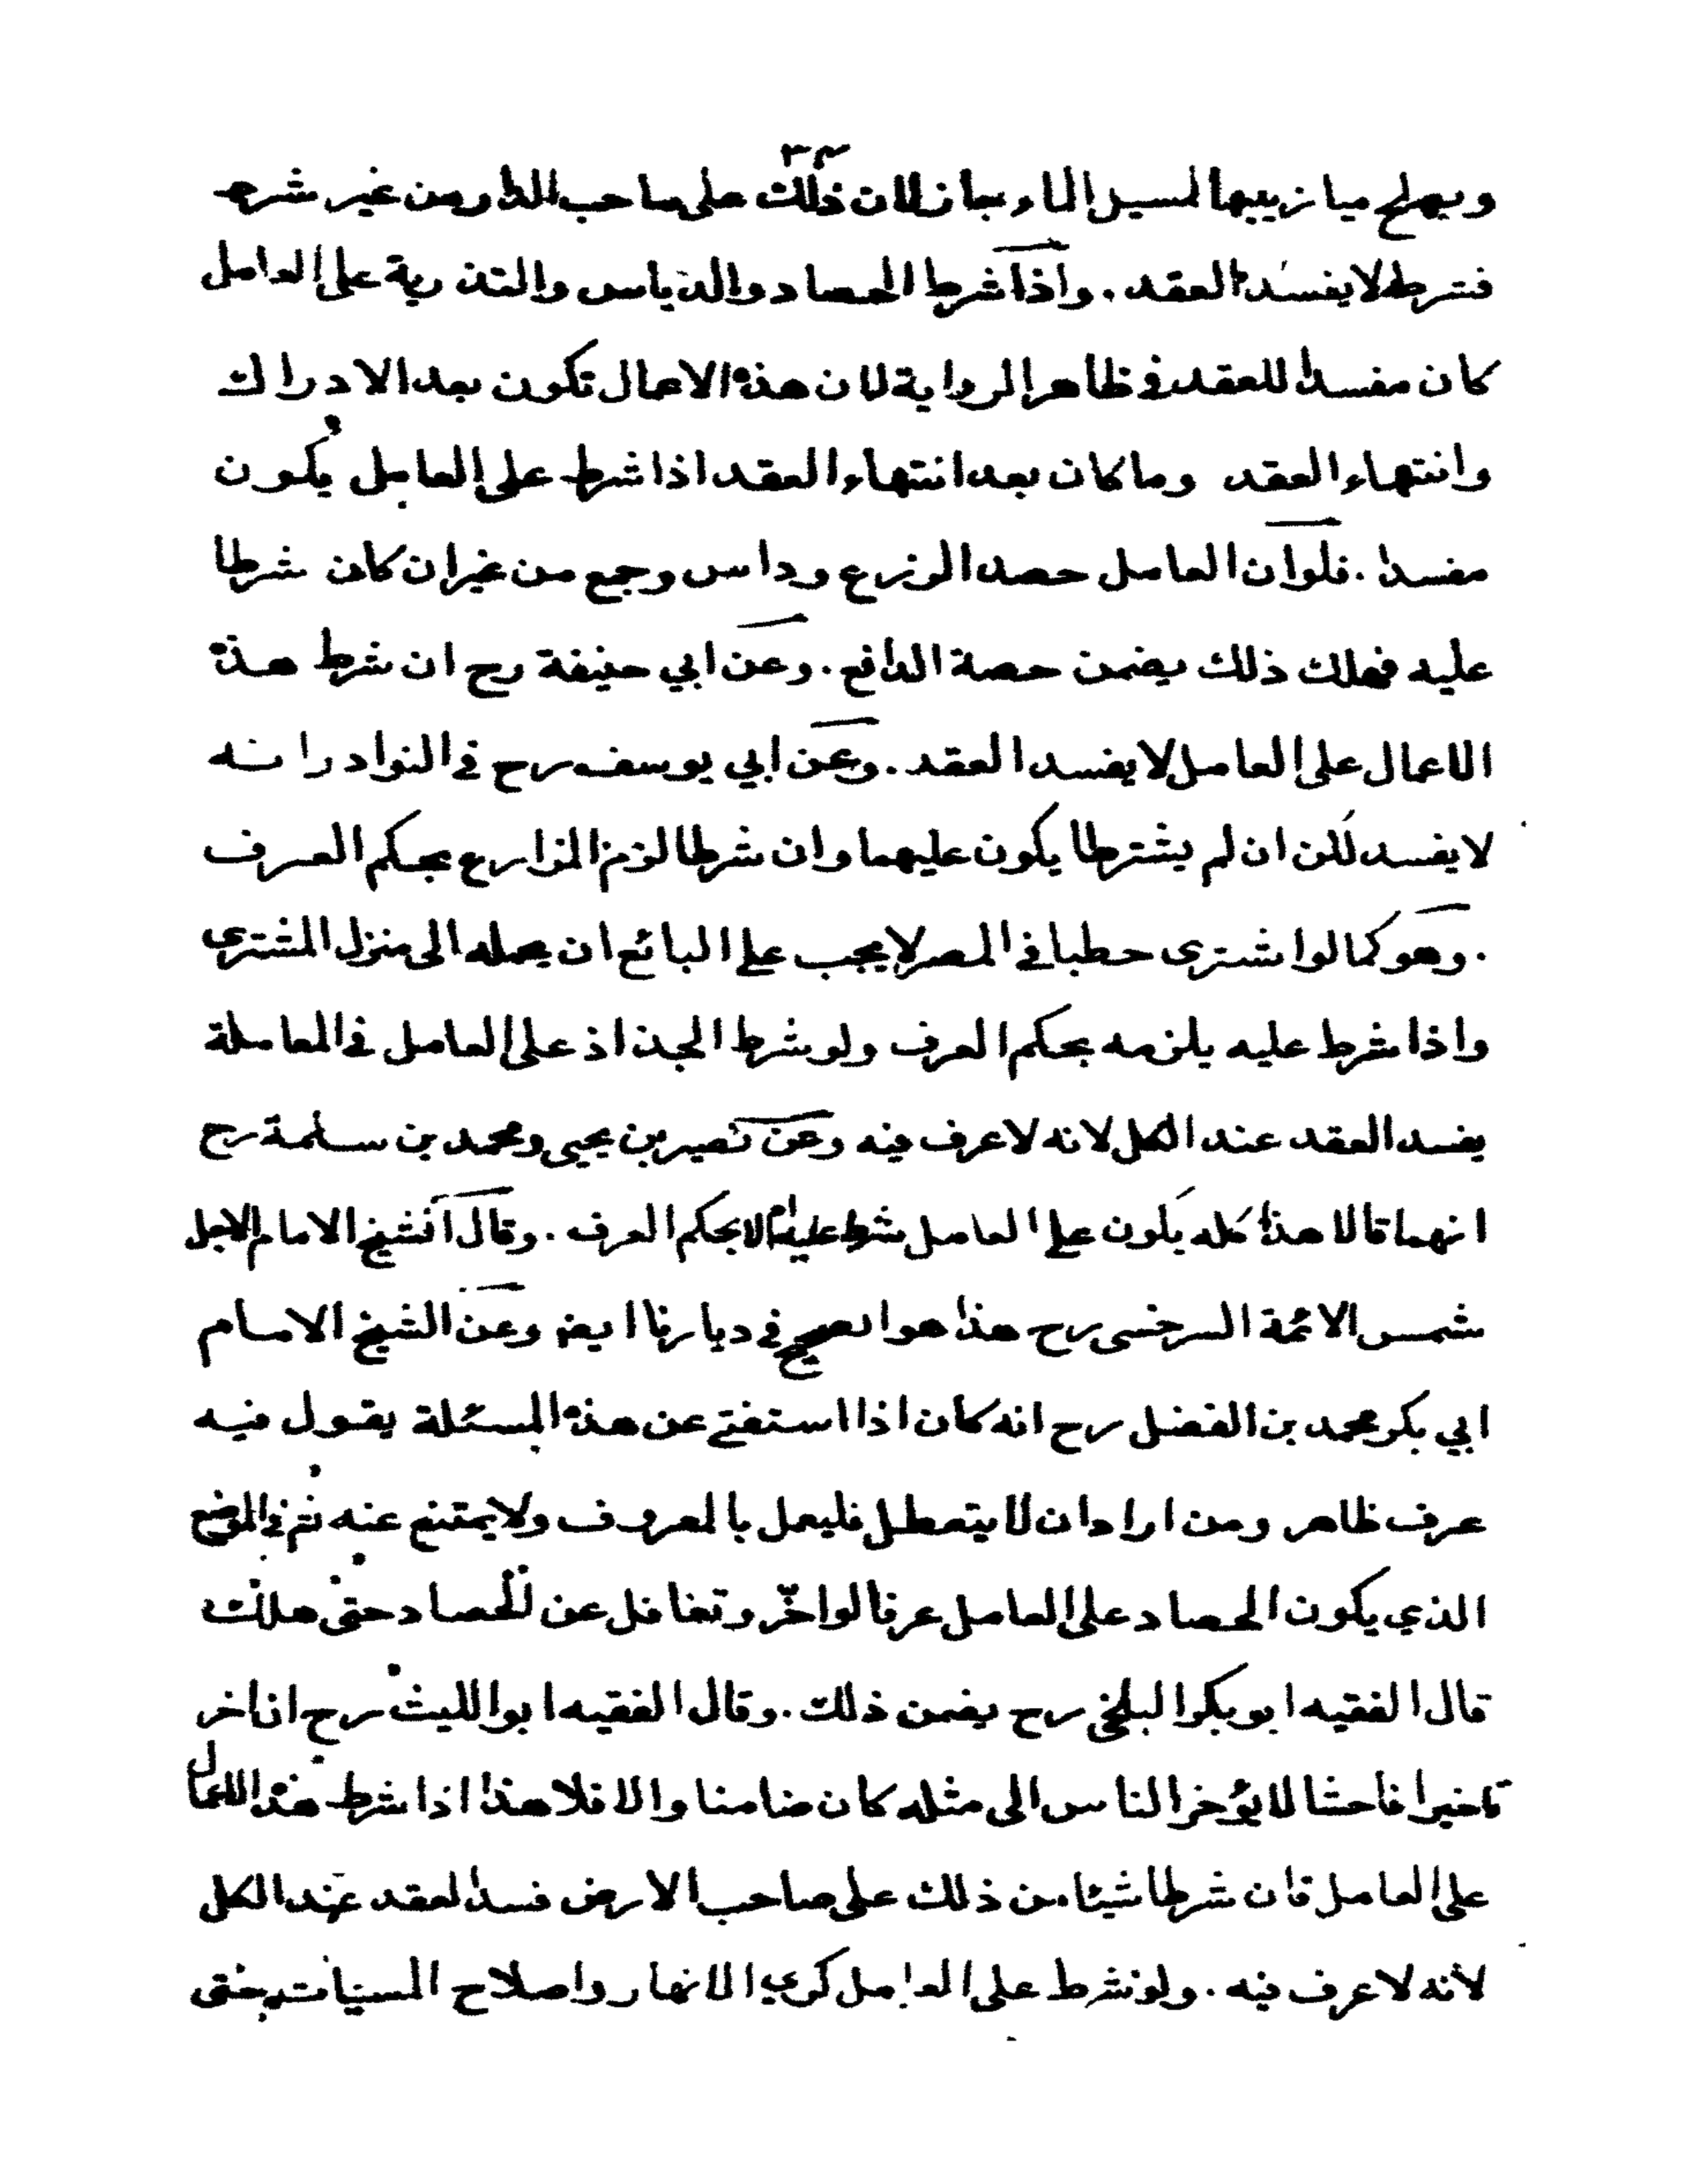 ويصلح ميازيبها لمسيل الماء جاز لان ذلك على صاحب الدار من غير شرط
فشرطه لا يفسد العقد . واذا شرط الحصاد والدياس والتذرية على العامل
كان مفسدا للعقد في ظاهر الرواية لان هذه الاعمال تكون بعد الادراك
وانتهاء العقد وما كان بعد انتهاء العقد اذا شرط على العامل يكون
مفسدا . فلو ان العامل حصد الزرع وداس وجمع من غير ان كان شرطا
عليه فهلك ذلك يضمن حصة الدافع . وعن ابي حنيفة رح ان شرط هذه
الاعمال على العامل لا يفسد العقد . وعن ابي يوسف رح في النوادر انه
لا يفسد لكن ان لم يشترطا يكون عليهما وان شرطا لزم المزارع بحكم العرف
. وهو كما لو اشترى حطبا في المصر لا يجب على البائع ان يحمله الى منزل المشترى
واذا شرط عليه يلزمه بحكم العرف ولو شرط الجذاذ على العامل في المعاملة
يفسد العقد عند الكل لانه لا عرف فيه وعن نصير بن يحيى ومحمد بن سلمة رح
انهما قالا هذا كله يكون على العامل شرط عليه ام لا بحكم العرف . وقال الشيخ الامام الاجل
شمس الائمة السرخسى رح هذا هو الصحيح في ديارنا ايضا وعن الشيخ الامام
ابي بكر محمد بن الفضل رح انه كان اذا استفتي عن هذه المسئلة يقول فيه
عرف ظاهر ومن اراد ان لا يتعطل فليعمل بالمعروف ولا يمتنع عنه ثم في الموضع
الذي يكون الحصاد على العامل عرفا لو اخّر وتغافل عن الحصاد حتى هلك
قال الفقيه ابو بكر البلخي رح يضمن ذلك . وقال الفقيه ابو الليث رح ان اخر
تاخيرا فاحشا لا يؤخر الناس الى مثله كان ضامنا والا فلا هذا اذا شرط هذه الاعمال
على العامل فان شرطا شيئا من ذلك على صاحب الارض فسد العقد عند الكل
لأنه لا عرف فيه . ولو شرط على العامل كري الانهار واصلاح المسنيات حتى